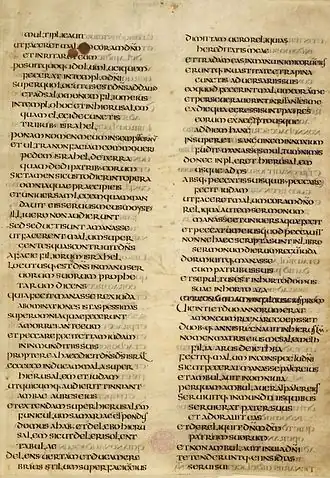 multiplicauit
ut faceret malum coram dno
et inritaret eum
posuit quoque idolum luci quem
fecerat in templo dni
super quo locutus est dns ad dauid
et ad salomonem filium eius
in templo hoc et in hierusalem
quam elegi de cunctis
tribubus israhel
ponam nomen meum in sempiternum
et ultra non faciam commoueri
pedem israhel de terra
quam dedi patribus eorum
si tamen custodierint opere
omnia quae praecepi eis
et uniuersam legem quam man
dauit eis seruus meus moyses
illi uero non audierunt
sed seducti sunt a manasse
ut facerent malum super
gentes quas contriuit dns
a facie filiorum israhel
locutusque est dns in manu ser
uorum suorum prophe
tarum dicens
quia fecit manasses rex iuda
abominationes istas pessimas
super omnia quae fecerunt
amorrei ante eum
et peccare fecit etiam iudam
in inmunditiis suis
propterea haec dicit dns ds israhel
ecce ego inducam mala super
hierusalem et iudam
ut quicumque audierit tinniant
ambae aures eius
et extendam super hierusalem fu
niculum samariae et pondus
domus ahab et delebo hieru
salem sicut deleri solent
tabulae
delens uertam et ducam cre
brius stilum super faciem eius
dimittam uero reliquias
hereditatis meae
et tradam eas in manu inimicorum eius
eruntque in uastitate et rapina
cunctis aduersariis suis
eo quod fecerint malum coram me
et perseuerauerint inritantes me
ex die qua egressi sunt patres
eorum ex aegypto usque
ad diem hanc
insuper et sanguinem innoxium
fudit manasses multum nimis
donec impleret hierusalem
usque ad os
absque peccatis suis quibus peccare
fecit iudam
ut faceret malum coram dno
reliqua autem sermonum
manasse et uniuersa quae fecit
et peccatum eius quod peccauit
nonne haec scripta sunt in libro
sermonum dierum regum iuda
dormiuitque manasse
cum patribus suis
et sepultus est in horto domus
suae in horto aza
et regnauit amon filius eius pro eo
uiginti et duo annorum erat
amon cum regnare coepisset
duobusque annis regnauit in hierusalem
nomen matris eius mesallemeth
filia arus de iethba
fecitque malum in conspectu dni
sicut fecerat manasses pater eius
et ambulauit in omni uia
per quam ambulauerat pater eius
seruiuitque inmunditiis quibus
seruierat pater suus
et adorauit eas
et dereliquit dnm dm
patrum suorum
et non ambulauit in uia dni
tetenderuntque ei insidias
serui sui